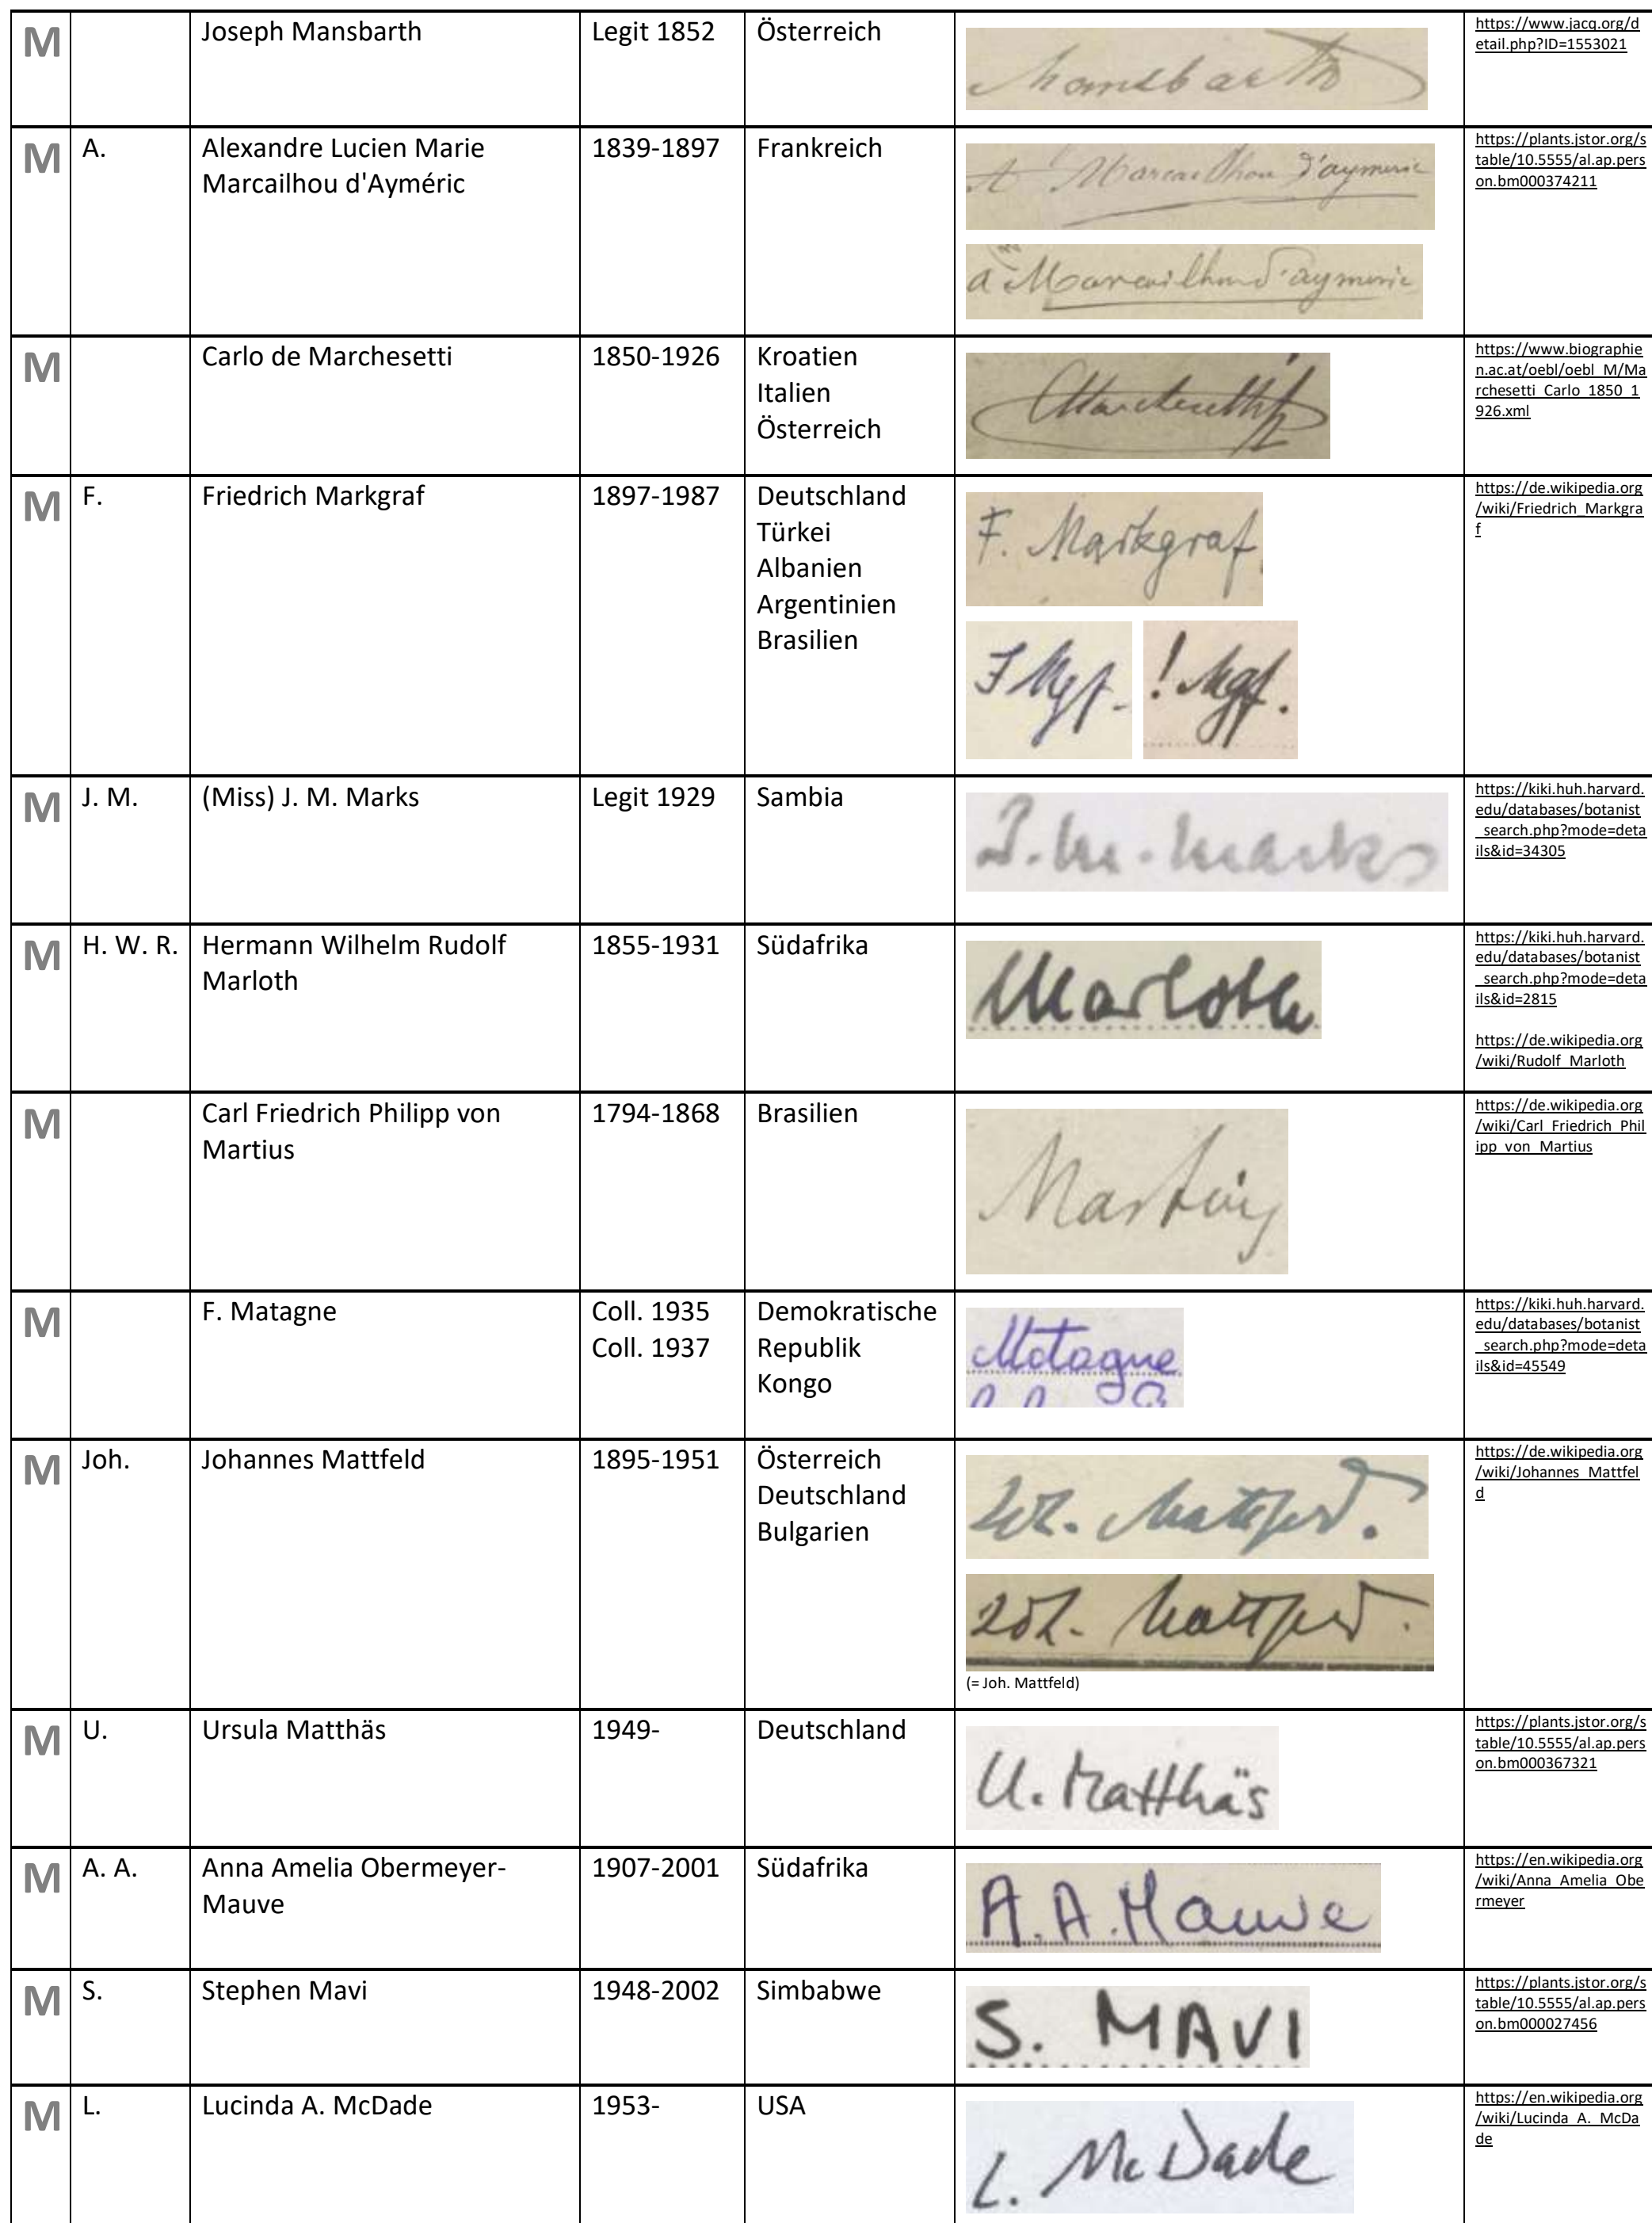 M
Joseph Mansbarth
Legit 1852
Österreich
Mansbarth
https://www.jacq.org/d
etail.php?ID=1553021
M
A.
Alexandre Lucien Marie
Marcailhou d'Ayméric
1839-1897
Frankreich
A Marcailhou d'aymeric
a Marcailhou d'aymeric
https://plants.jstor.org/s
table/10.5555/al.ap.pers
on.bm000374211
M
Carlo de Marchesetti
1850-1926
Kroatien
Italien
Österreich
Marchesetti
https://www.biographie
n.ac.at/oebl/oebl_M/Ma
rchesetti_Carlo_1850_1
926.xml
M
F.
Friedrich Markgraf
1897-1987
Deutschland
Türkei
Albanien
Argentinien
Brasilien
F. Markgraf
F Mgf.
! Mgf.
https://de.wikipedia.org
/wiki/Friedrich_Markgra
f
M
J. M.
(Miss) J. M. Marks
Legit 1929
Sambia
J. M. Marks
https://kiki.huh.harvard.
edu/databases/botanist
_search.php?mode=deta
ils&id=34305
M
H. W. R.
Hermann Wilhelm Rudolf
Marloth
1855-1931
Südafrika
Marloth
https://kiki.huh.harvard.
edu/databases/botanist
_search.php?mode=deta
ils&id=2815
https://de.wikipedia.org
/wiki/Rudolf_Marloth
M
Carl Friedrich Philipp von
Martius
1794-1868
Brasilien
Martius
https://de.wikipedia.org
/wiki/Carl_Friedrich_Phil
ipp_von_Martius
M
F. Matagne
Coll. 1935
Coll. 1937
Demokratische
Republik
Kongo
Matagne
https://kiki.huh.harvard.
edu/databases/botanist
_search.php?mode=deta
ils&id=45549
M
Joh.
Johannes Mattfeld
1895-1951
Österreich
Deutschland
Bulgarien
Joh. Mattfeld.
Joh. Mattfeld.
(= Joh. Mattfeld)
https://de.wikipedia.org
/wiki/Johannes_Mattfel
d
M
U.
Ursula Matthäs
1949-
Deutschland
U. Matthäs
https://plants.jstor.org/s
table/10.5555/al.ap.pers
on.bm000367321
M
A. A.
Anna Amelia Obermeyer-
Mauve
1907-2001
Südafrika
A.A. Mauve
https://en.wikipedia.org
/wiki/Anna_Amelia_Obe
rmeyer
M
S.
Stephen Mavi
1948-2002
Simbabwe
S. MAVI
https://plants.jstor.org/s
table/10.5555/al.ap.pers
on.bm000027456
M
L.
Lucinda A. McDade
1953-
USA
L. McDade
https://en.wikipedia.org
/wiki/Lucinda_A._McDa
de